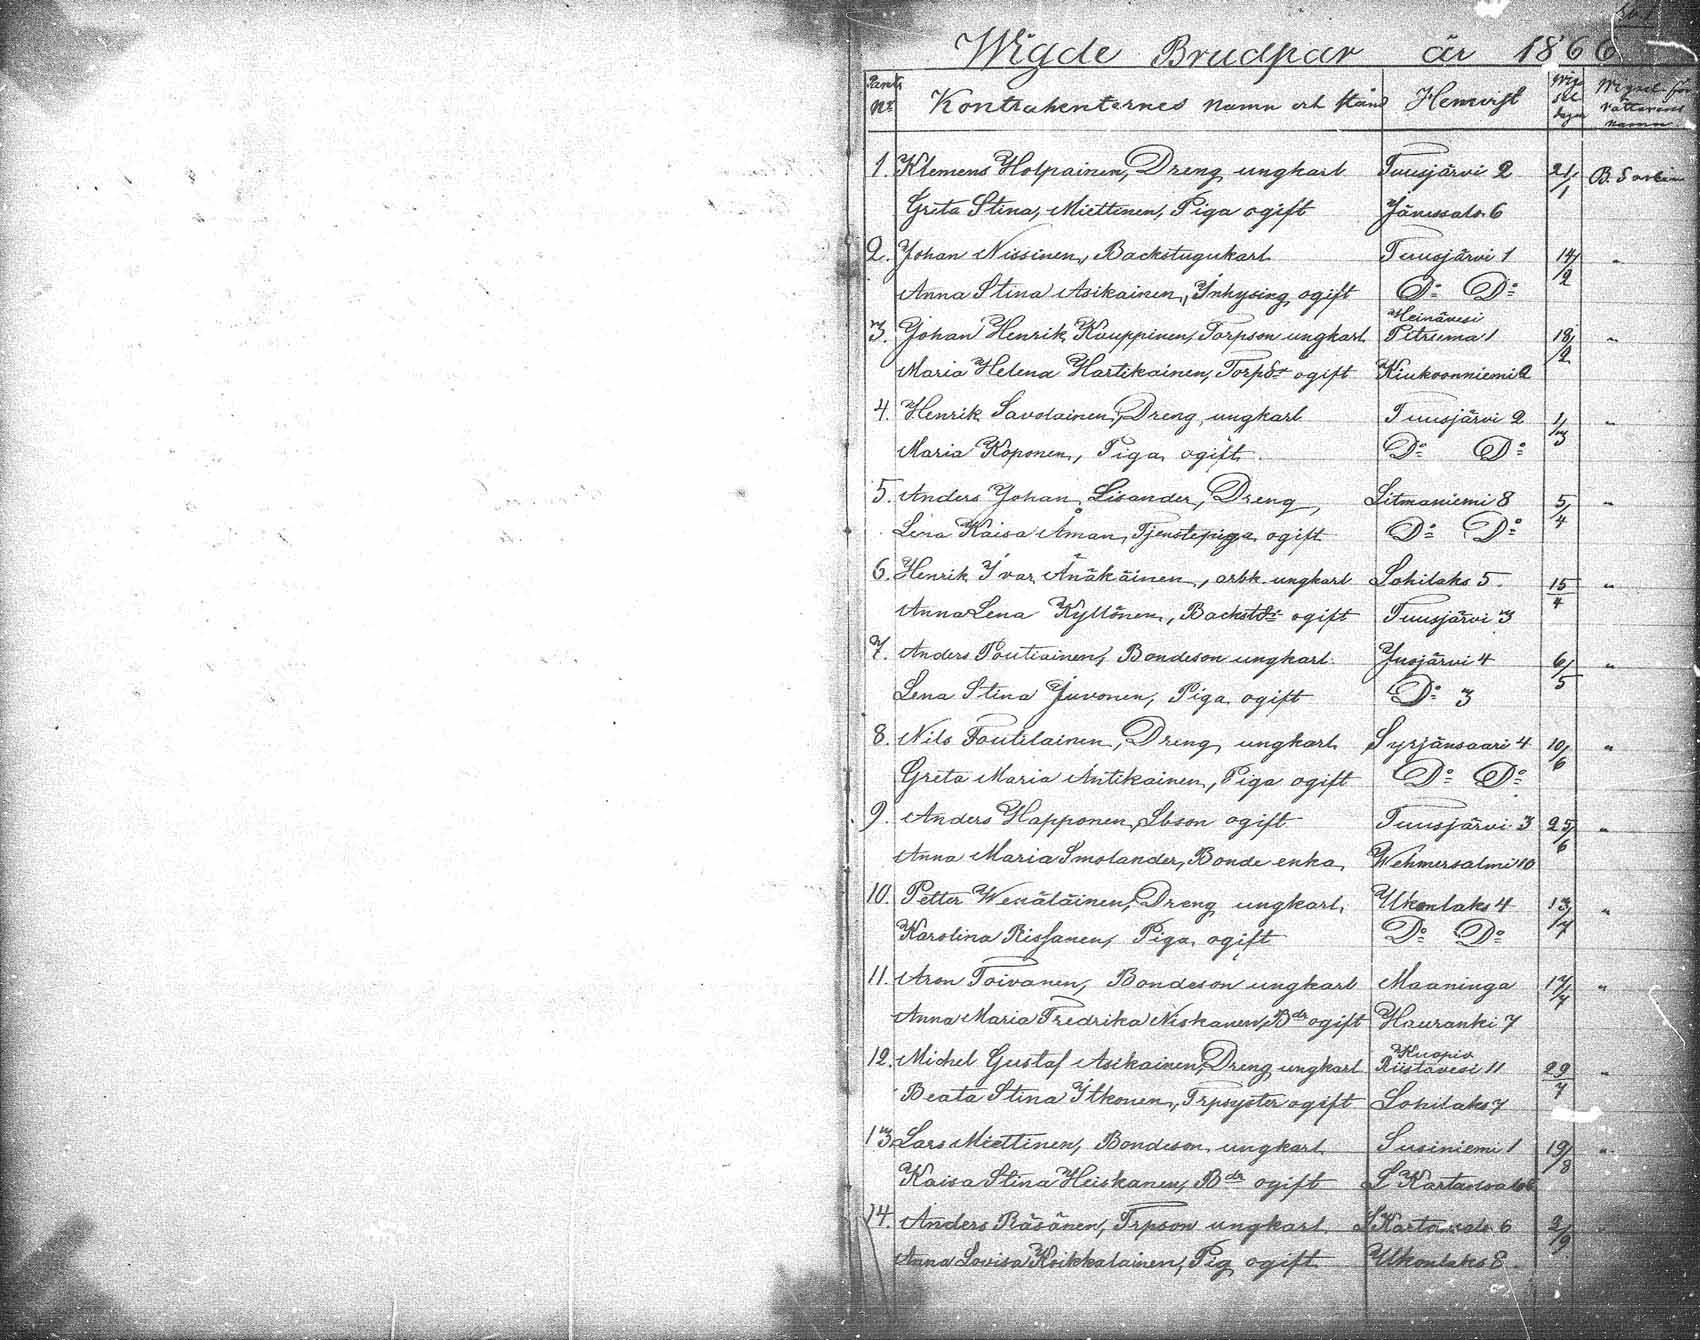 Wigde Brudpar år 1866
Parets No Kontrahenternes namn och stånd Hemvist Wig sel dagen Wigsel för rättarens namn
1. Klemens Holpainen, Dreng ungkarl Tuusjärvi 2 21/1
Greta Stina Miettinen, Piga ogift Jänissalo 6
2. Johan Nissinen, Backstugukarl Tuusjärvi 1 14/2 "
Anna Stina Asikainen, Inhysing ogift Do Do
Heinävesi
3. Johan Henrik Kauppinen, Torpson ungkarl Petruma 1 18/2 "
Maria Helena Hartikainen, Torpdr ogift Kiukoonniemi 2
4. Henrik Savolainen, Dreng ungkarl Tuusjärvi 2 1/3 "
Maria Koponen, Piga ogift Do Do
5. Anders Johan Lisander, Dreng, Litmaniemi 8 5/4 "
Lena Kaisa Åman, Tjenstepiga ogift Do Do
6. Henrik Ivar Änäkäinen, arbk. ungkarl Lohilaks 5. 15/4 "
Anna Lena Kyllönen, Backstdr ogift Tuusjärvi 3
7. Anders Poutiainen, Bondeson ungkarl Juojärvi 4 6/5 "
Lena Stina Juvonen, Piga ogift Do 3
8. Nils Toutilainen, Dreng ungkarl Syrjänsaari 4 10/6 "
Greta Maria Antikainen, Piga ogift Do Do
9. Anders Happonen, Sbson ogift Tuusjärvi 3 25/6 "
Anna Maria Smolander, Bonde enka, Wehmersalmi 10
10. Petter Wenäläinen, Dreng ungkarl, Ukonlaks 4 13/7 "
Karolina Rissanen, Piga ogift Do Do
11. Aron Toivanen, Bondeson ungkarl Maaninga 17/7 "
Anna Maria Fredrika Niskanen, Bdr ogift Hauranki 7
Kuopio
12. Michel Gustaf Asikainen, Dreng ungkarl Riistavesi 11 29/7 "
Beata Stina Itkonen, Trpsyster ogift Lohilaks 7
13. Lars Miettinen, Bondeson ungkarl Susiniemi 1 19/8 "
Kaisa Stina Heiskanen, Bdr ogift
14. Anders Räsänen, Trpson ungkarl 6 2/9
Anna Lovisa Koikkalainen, Pig ogift Ukonlaks 8.